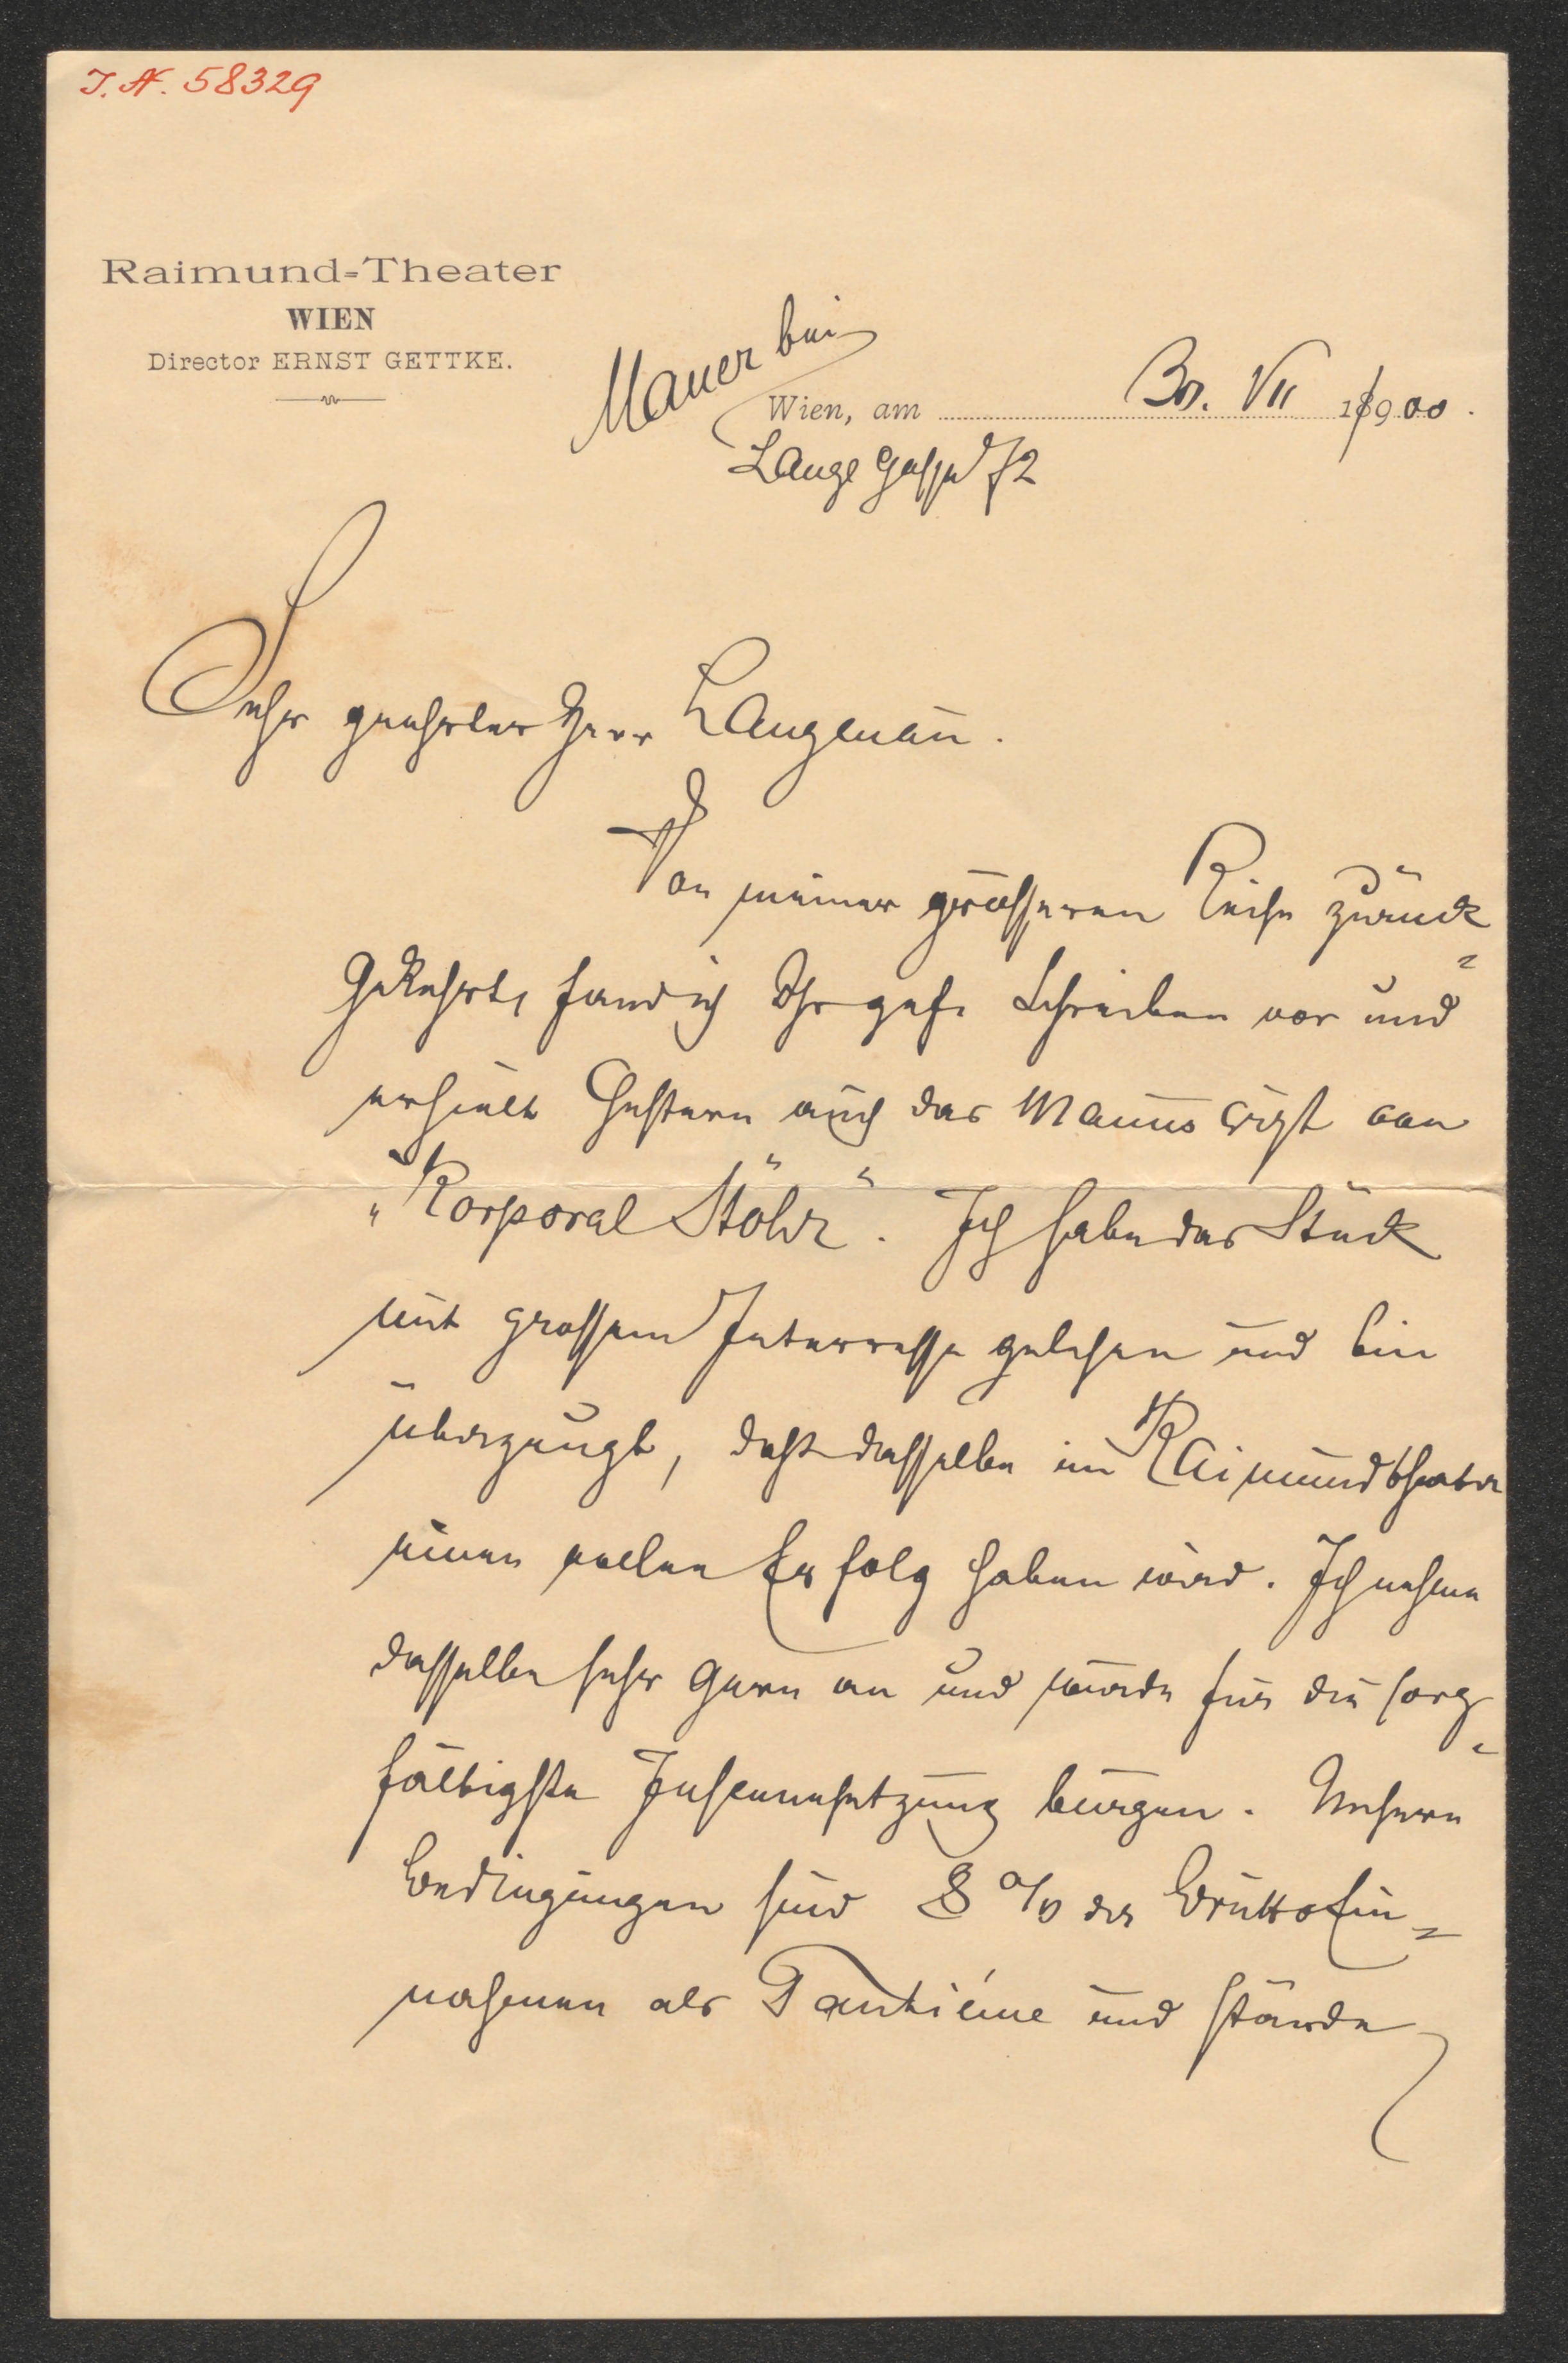 I. N. 58329
Raimund-Theater
WIEN
Director ERNST GETTKE.
Mauer bei
Wien, am 30. VII 1900.
Lange Gasse 72
Sehr geehrter Herr Langmann.
Von meiner grösseren Reise zurück-
gekehrt, fand ich Ihr gesch. Schreiben vor und
erhielt gestern auch das Manuscript von
„Korporal Stöhr“. Ich habe das Stück
mit grossem Interresse gelesen und bin
überzeugt, dass dasselbe im Raimundtheater
einen vollen Erfolg haben wird. Ich nehme
dasselbe sehr gern an und würde für die sorg-
fältigste Inscenesetzung bürgen. Unsere
Bedingungen sind 8 % der Bruttoein-
nahmen als Tantième und stände